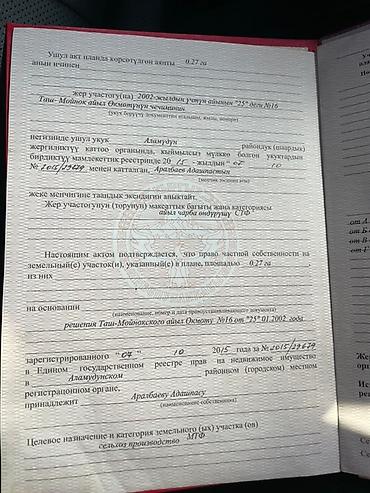 Ушул акт планда көрсөтүлгөн аянты 0.27 га
анын ичинен
жер участогу(на) 2002-жылдын үчтүн айынын "25" деги №16
Таш-Мойнок айыл Өкмөтүнүн чечиминин
(укук берүүчү документтин аталышы, жылы, номери)
негизинде ушул укук Аламудун райондук (шаардык)
жергиликтүү каттоо органында, кыймылсыз мүлккө болгон укуктардын
бирдиктүү мамлекеттик реестринде 20 15 - жылдын " 07 10
№ 2015/29679 менен катталган, Аралбаев Адашпастын
(менчик ээсинин аты)
жеке менчигине таандык экендигин аныктайт.
Жер участогунун (торунун) максаттык багыты жана категориясы
айыл чарба өндүрүшү СТФ
Настоящим актом подтверждается, что право частной собственности на
земельный(е) участок(и), указанный(е) в плане, площадью 0.27 га
из них
на основании
(наименование, номер и дата правоустанавливающего документа)
решения Таш-Мойнокского айыл Окмоту №16 от "25".01.2002 года
зарегистрированного " 07 " 10 2015 года за № 2015/29679
в Едином государственном реестре прав на недвижимое имущество
в Аламудунском районном (городском) местном
регистрационном органе,
принадлежит Аралбаеву Адашпасу
(наименование собственника)
Целевое назначение и категория земельного (ых) участка (ов)
сельхоз производство МТФ
от А
от Б
от В
от Г